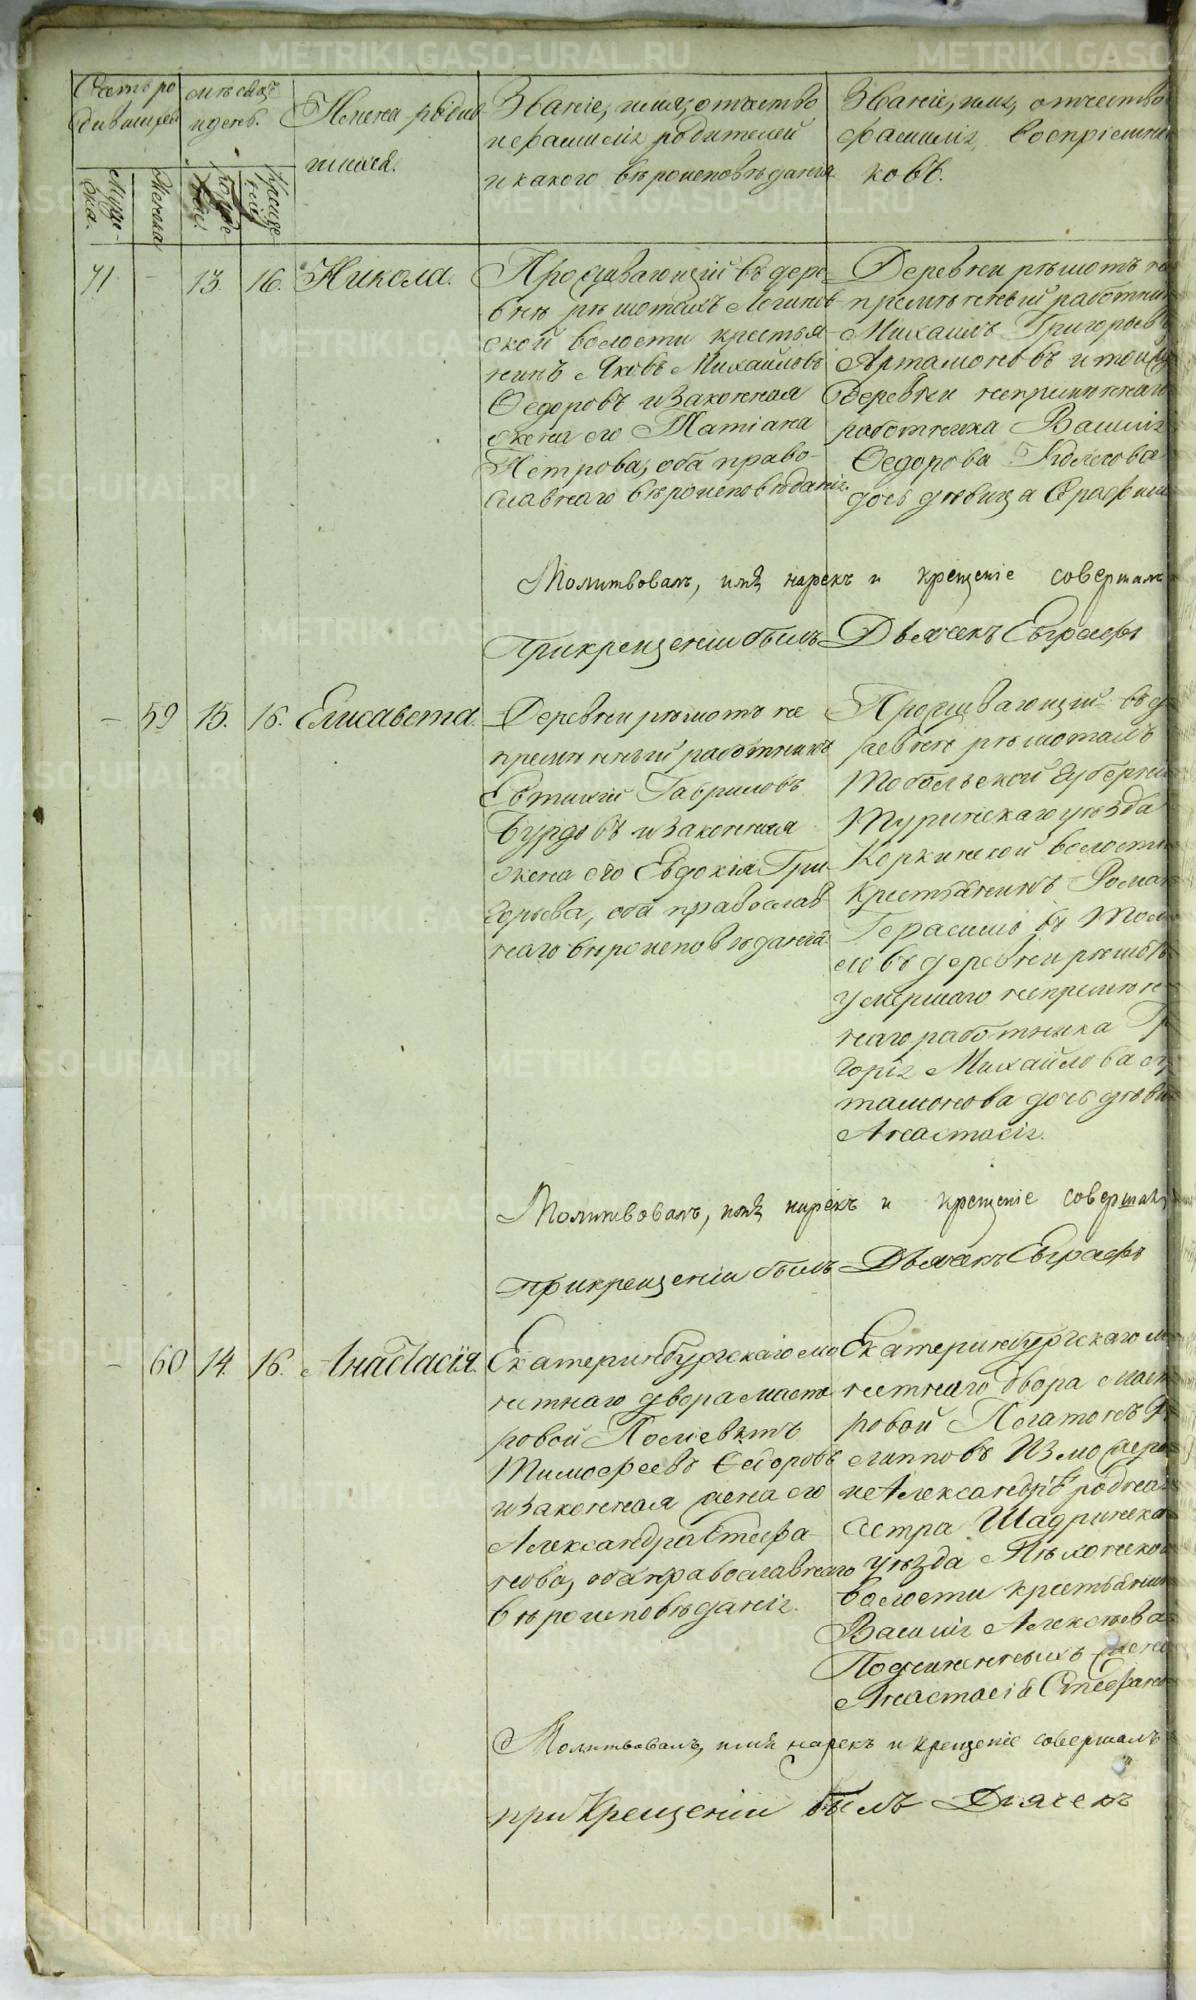 Счетъ ро
дившихся
мѣсяцъ
и день.
Имена родив
шихся.
Званіе, имя, отчество
и фамилія родителей
и какого вѣроисповѣданія
Званіе, имя, отчество
фамилія воспріемни
ковъ.
Муже-
ска.
Женска
Креще
нія
71.
-
13.
16.
Никола.
Проживающій въ дере-
внѣ рѣшотахъ Логинов
ской волости крестья
нинъ Яковъ Михайловъ
Ѳедоровъ и законная
жена его Татіана
Петрова, оба право-
славнаго вѣроисповѣданія.
Деревни рѣшотъ не
премѣнный работник
Михаилъ Григорьев
Артамоновъ и той же
деревни непремѣннаго
работника Василія
Ѳедорова Колегова
дочь дѣвица Серафим
Молитвовалъ, имя нарекъ и крещеніе совершалъ
При крещеніи былъ Дьячекъ Евграфъ
-
59
15.
16.
Елисавета.
Деревни рѣшотъ не
премѣнный работникъ
Евтихій Гавриловъ
Бурдовъ и законная
жена его Евдокія Гри-
горьева, оба православ
наго вѣроисповѣданія.
Проживающій въ д
ревнѣ рѣшотахъ
Тобольской губерніи
Туринскаго уѣзда
Коркинской волости
крестьянинъ Роман
Герасимовъ
въ деревни рѣшотъ
умершаго непремѣн
наго работника Гр
горія Михайлова Ар
тамонова дочь дѣви
Анастасія.
Молитвовалъ, имя нарекъ и крещеніе совершалъ
При крещеніи былъ Дьячекъ Евграфъ
-
60
14.
16.
Анастасія.
Екатеринбургскаго мо
нетнаго двора масте
ровой Поліевктъ
Тимофеевъ Ѳедоровъ
и законная жена его
Александра Стефа-
нова, оба православнаго
вѣроисповѣданія.
Екатеринбургскаго м
нетнаго двора масте
ровой Потатонъ Ф
липповъ Изможеро
и Александрѣ родная
сестра Шадринска
уѣзда
волости крестьянин
Василія Алексѣева
жена
Анастасія Стефанов
Молитвовалъ, имя нарекъ и крещеніе совершалъ
при крещеніи былъ Дьячекъ